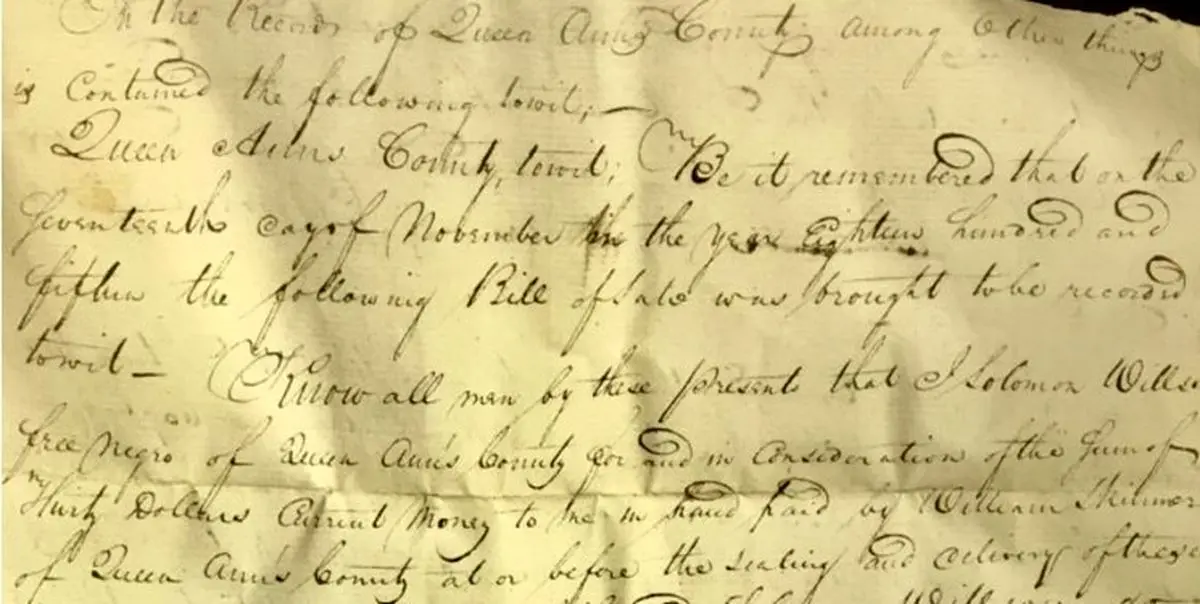 In the Records of Queen Anns County among Other things
is contained the following towit;—
Queen Anns County, towit; Be it remembered that on the
Seventeenth day of November in the year Eighteen hundred and
fifteen the following Bill of Sale was brought to be recorded
towit— Know all men by these presents that I Solomon Wills
free negro of Queen Ann's County for and in consideration of the Sum of
Thirty Dollars Current Money to me in hand paid by William Skinner
of Queen Ann's County at or before the sealing and delivery of these